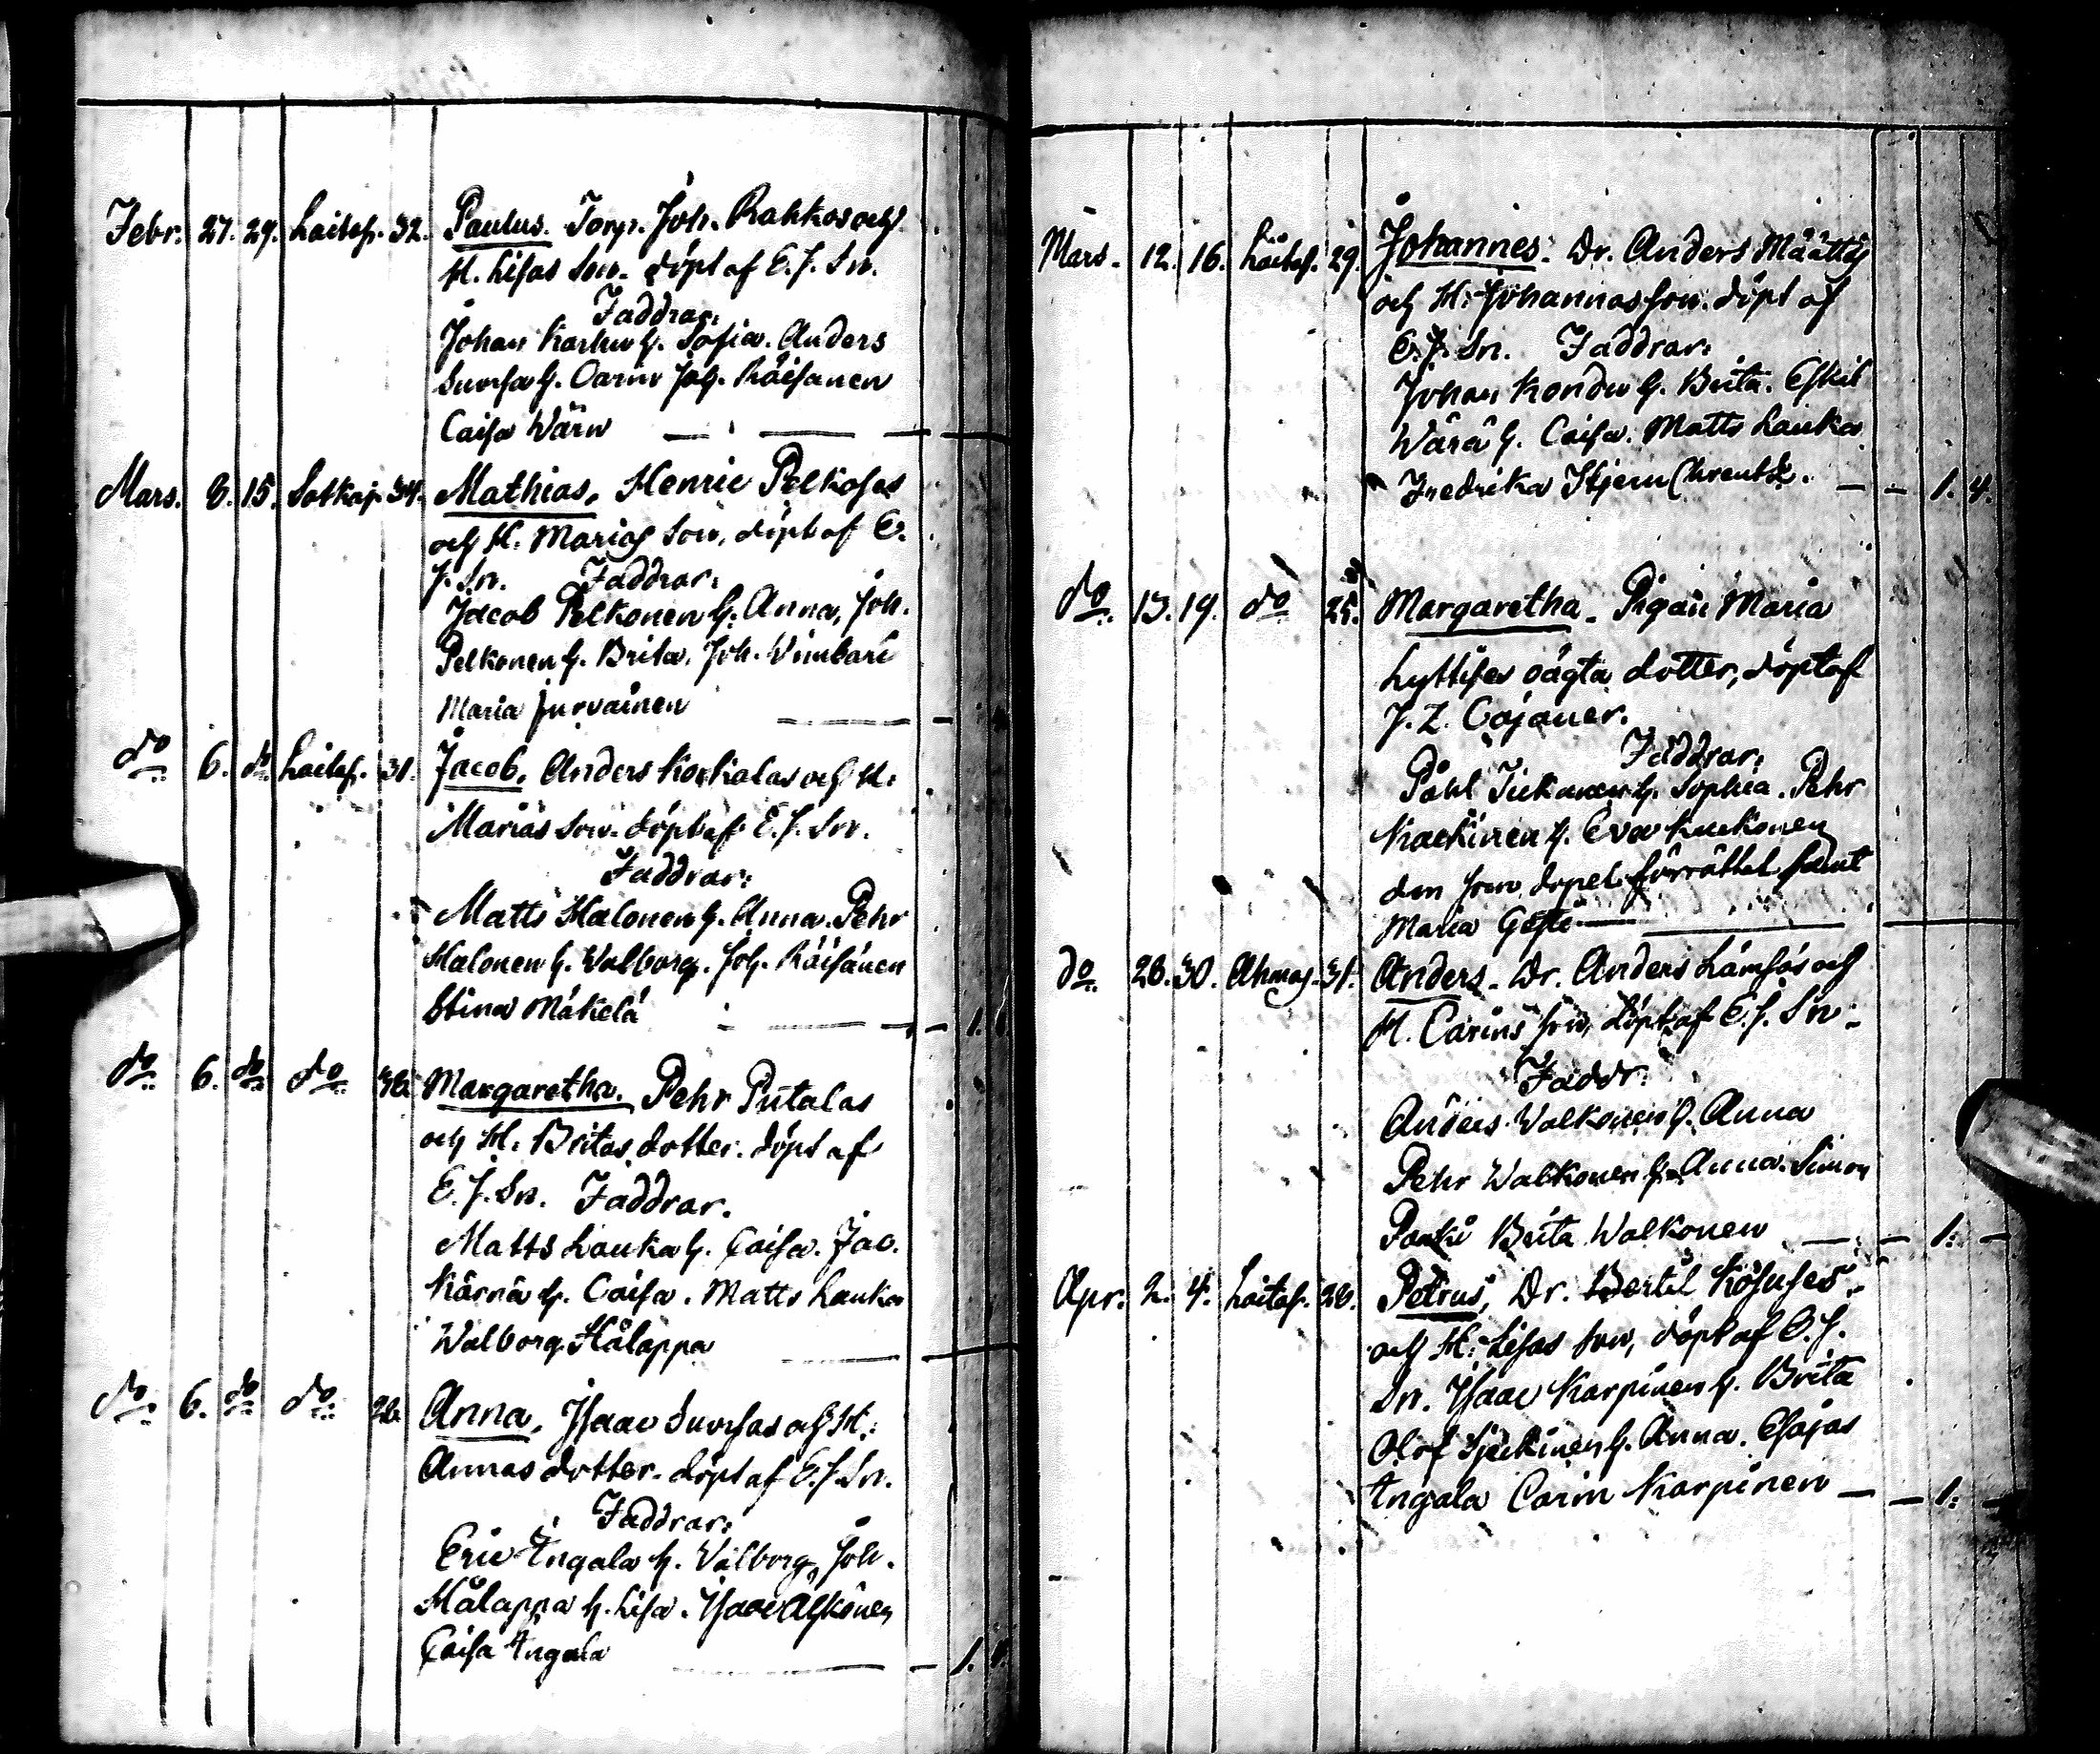 Febr. 27. 29. Laitas. 32. Paulus. Torp. Joh. Rahkos och
H. Lisas Son. döpt af E. J. Sn.
Faddrar:
Johan Karhu h. Sofia. Anders
Suorsa h. Carin Joh. Räisänen
Caisa Wärn
Mars. 8. 15. Sotkaj. 34. Mathias, Henric Pelkoses
och H. Marias Son, döpt af E.
J. Sn. Faddrar:
Jacob Pelkonen h. Anna, Joh.
Pelkonen h. Brita, Joh. Wimbari
Maria Jurvainen
do 6. do Laitas. 31. Jacob, Anders Korkalas och H:
Marias Son. döpt af E. J. Sn.
Faddrar:
Matts Halonen h. Anna. Pehr
Halonen h. Walborg. Joh. Räisänen
Stina Mäkelä 1.
do 6. do do Margaretha. Pehr Putalas
och H. Britas dotter. döpt af
E. J. Sn. Faddrar.
Matts Lauka h. Caisa. Jac.
Kärnä h. Caisa. Matts Lauka
Walborg Hålappa
do 6. do do Anna, Isaac Suorsas och H:
Annas dotter. döpt af E. J. Sn.
Faddrar:
Eric Ängala h. Walborg, Joh.
Hålappa h. Lisa. Isaac
Caisa Ängala 1.
Mars. 12. 16. Laitas. 29. Johannes. Dr. Anders Määttäs
och H: Johannas son. döpt af
E. J. Sn. Faddrar:
Johan Kondu h. Brita. Eskil
Wärä h. Caisa. Matts Lauka
Fredrika Stjerncreutz. 1. 4.
do 13. 19. do 25. Margaretha. Pigan Maria
Lyttises oägta dotter, döpt af
J. Z. Cajaner.
Faddrar:
Påhl Tickanen h. Sophia. Pehr
h. Eva
den som dopet förrättat samt
Maria
do 28. 30. Ahmas. 31. Anders. Dr. Anders Lämsäs och
H. Carins son, döpt af E. J. Sn.
Faddr:
Anders Walkonen h. Anna
Pehr Walkonen h. Anna. Simon
Brita Walkonen 1.
Apr. 2. 4. Laitas. 28. Petrus, Dr. Bertil Kösuses
och H: Lisas Son, döpt af E. J.
Sn. Isaac Karpinen h. Brita
Olof h. Anna. Esajas
Ängala Carin Karpinen 1.